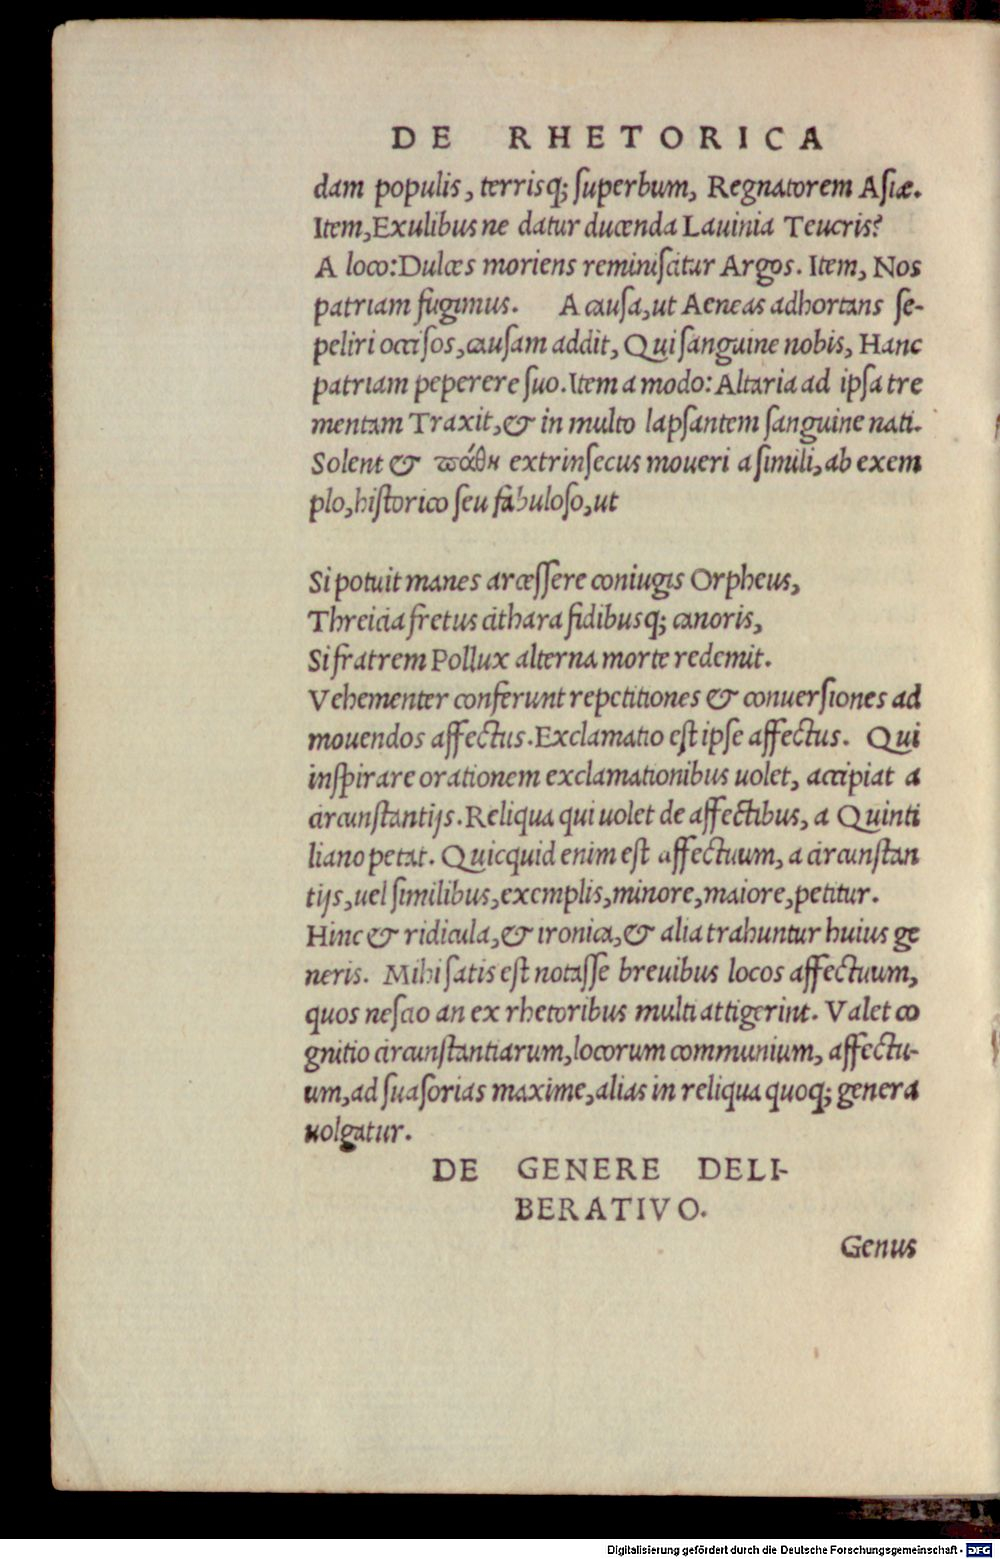 DE RHETORICA
dam populis, terrisq; ſuperbum, Regnatorem Aſiæ.
Item, Exulibus ne datur ducenda Lauinia Teucris?
A loco: Dulces moriens reminiſcitur Argos. Item, Nos
patriam fugimus. A cauſa, ut Aeneas adhortans ſe-
peliri occiſos, cauſam addit, Qui ſanguine nobis, Hanc
patriam peperere ſuo. Item a modo: Altaria ad ipſa tre
mentam Traxit, & in multo lapſantem ſanguine nati.
Solent & πάθη extrinſecus moueri a ſimili, ab exem
plo, hiſtorico ſeu fabuloſo, ut
Si potuit manes arceſſere coniugis Orpheus,
Threicia fretus cithara fidibusq; canoris,
Si fratrem Pollux alterna morte redemit.
Vehementer conferunt repetitiones & conuerſiones ad
mouendos affectus. Exclamatio eſt ipſe affectus. Qui
inſpirare orationem exclamationibus uolet, accipiat a
circunſtantijs. Reliqua qui uolet de affectibus, a Quinti
liano petat. Quicquid enim eſt affectuum, a circunſtan
tijs, uel ſimilibus, exemplis, minore, maiore, petitur.
Hinc & ridicula, & ironica, & alia trahuntur huius ge
neris. Mihi ſatis eſt notaſſe breuibus locos affectuum,
quos neſcio an ex rhetoribus multi attigerint. Valet co
gnitio circunſtantiarum, locorum communium, affectu-
um, ad ſuaſorias maxime, alias in reliqua quoq; genera
uolgatur.
DE GENERE DELI-
BERATIVO.
Genus
Digitalisierung gefördert durch die Deutsche Forschungsgemeinschaft - DFG